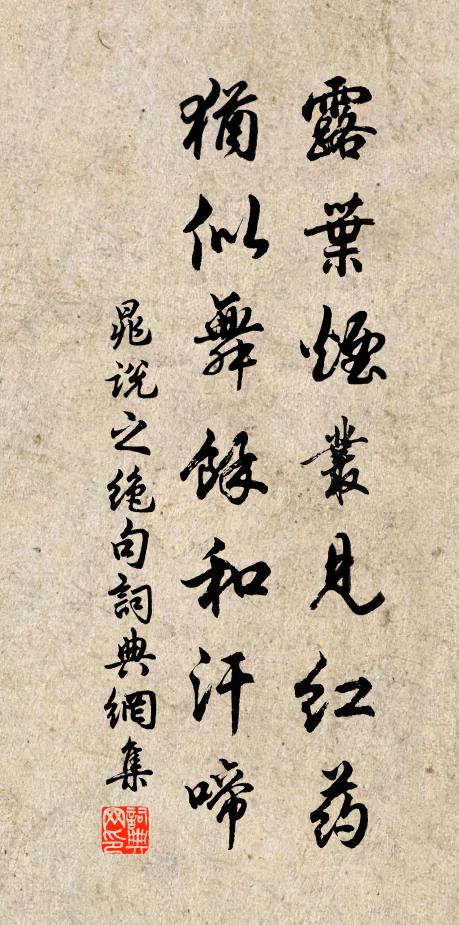 露葉煙叢見红药
猶似舞餘和汗啼
晁说之绝句詞典網集
詞典网印